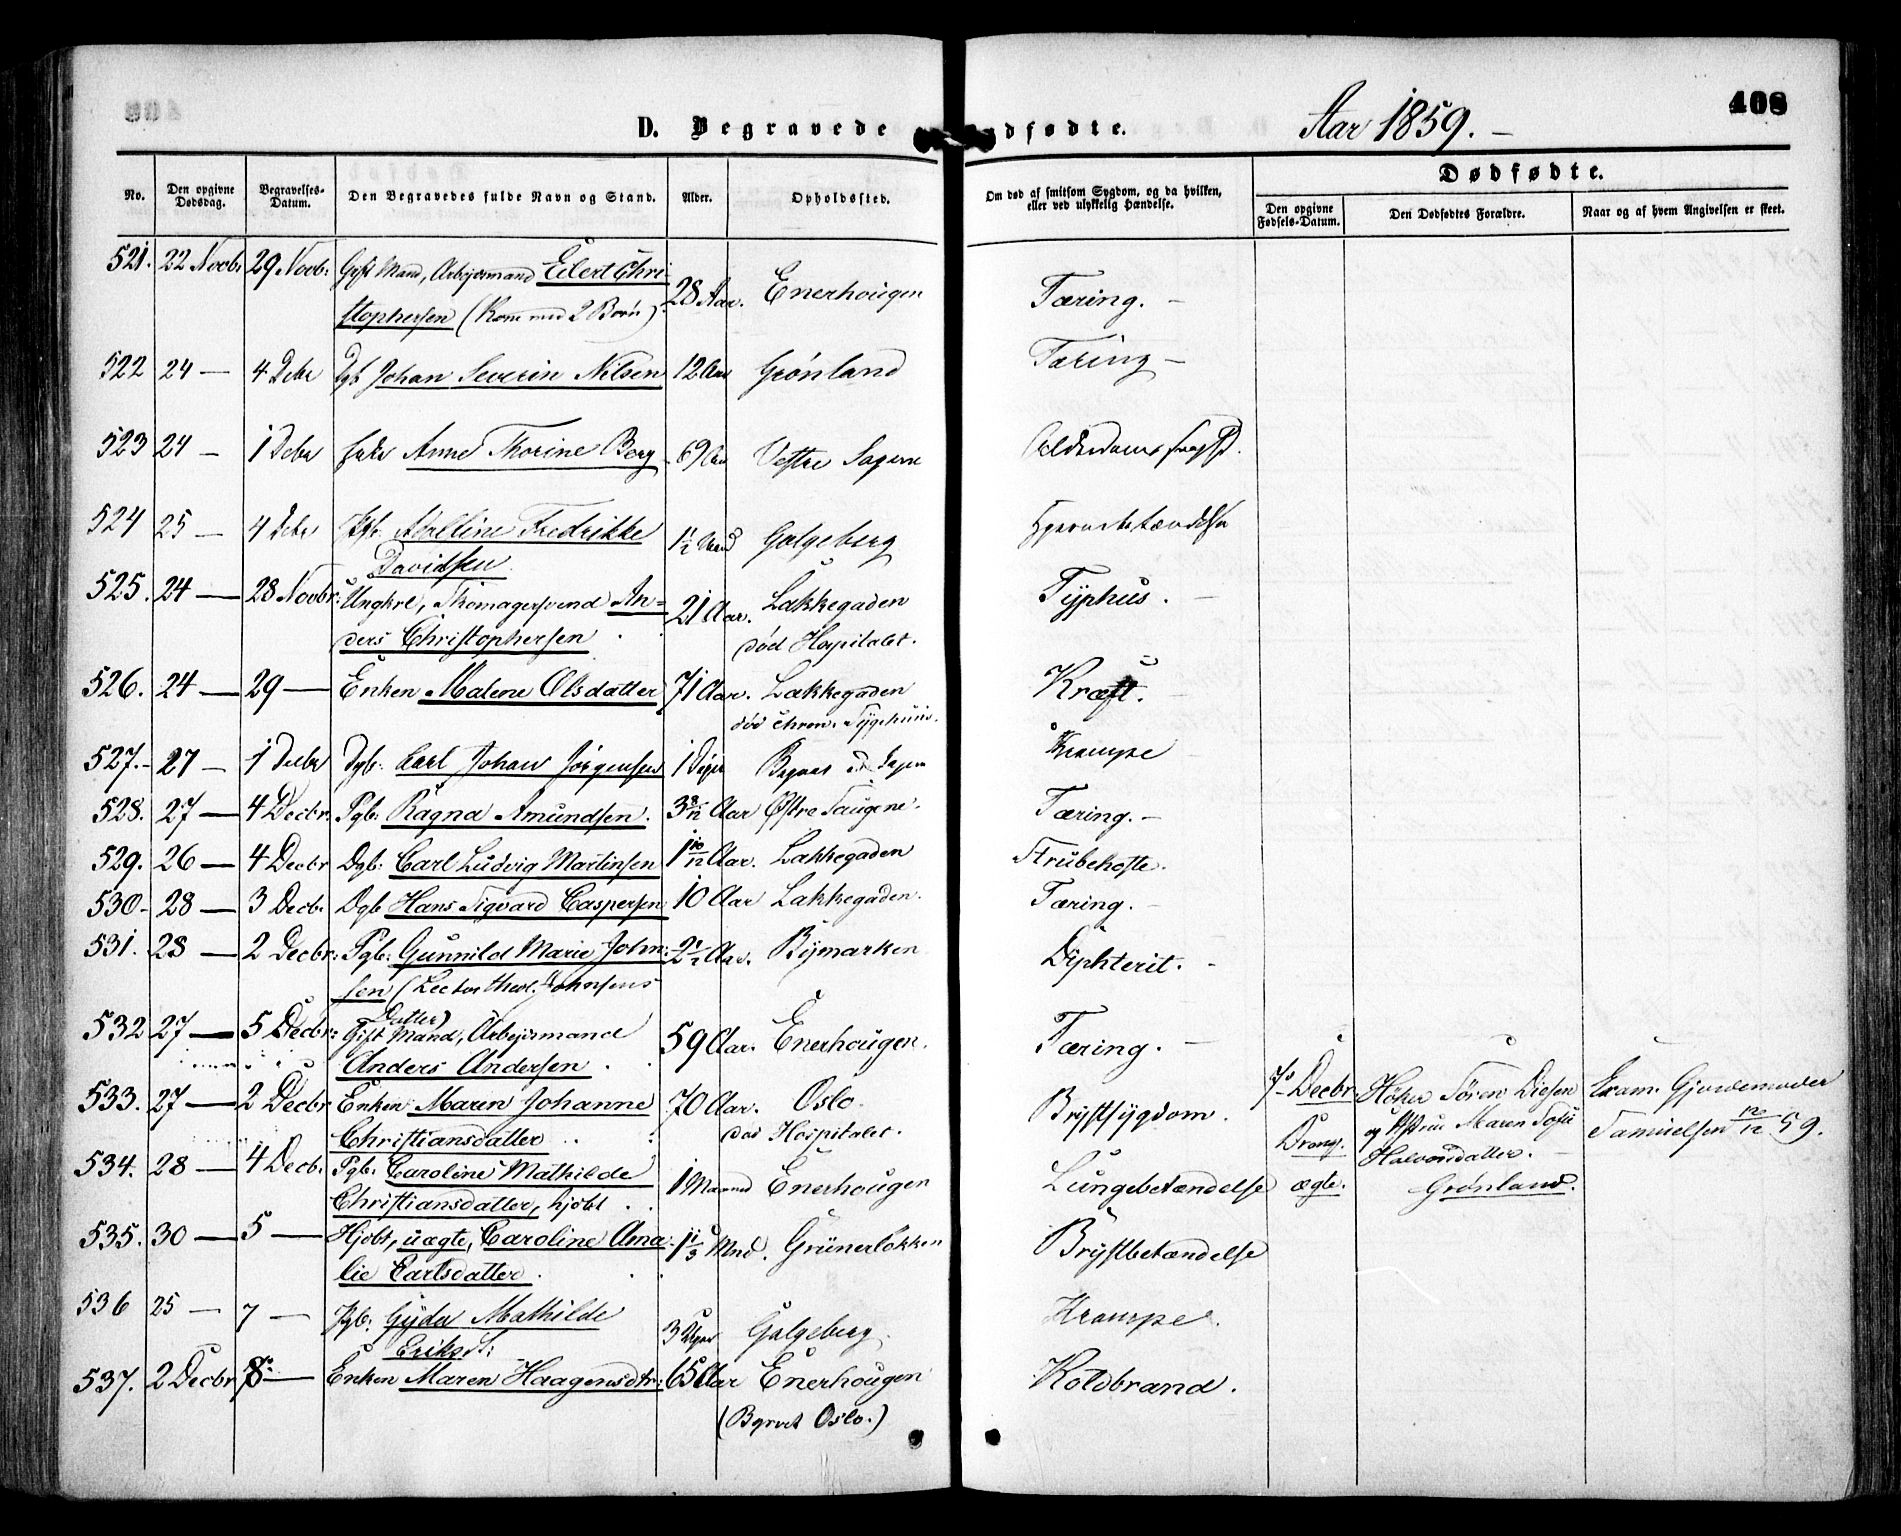 D. Begravede
Dødfødte.
Aar 1859. –
408
No.
Den opgivne Dødsdag.
Begravelses-Datum.
Den Begravedes fulde Navn og Stand.
Alder.
Opholdssted.
Om død af smitsom Sygdom, og da hvilken, eller ved ulykkelig Hændelse.
Dødfødte.
Den opgivne Fødsels-Datum.
Den Dødfødtes Forældre.
Naar og af hvem Angivelsen er skeet.
521. 22 Novb: 29 Novb: Gift Mand, Arbejdsmand Eilert Chri-
stophersen (Kone med 2 Børn) 28 Aar. Enerhougen Tæring. –
522 24 — 4 Debr Dgb Johan Severin Nilsen 12 Aar Grønland Tæring –
523 24 – 1 Debr Anne Thorine Berg 69 Aar Vestre Sagene
524 25 – 4 Debr Pgb. Adolline Fredrikke
Davidsen 1½ Galgeberg Hjernebetændelse
525. 24 — 28 Novbr: Ungkrl, Skomagersvend An-
ders Christophersen 21 Aar. Lakkegaden
død Hospitalet. Typhus. –
526. 24 — 29 — Enken Malene Olsdatter 71 Aar. Lakkegaden
død chron. Sygehuus. Kræft.
527. 27 – 1 Debr Dgb: Carl Johan Jørgensen 1 Krampe
528. 27 — 4 Decbr. Pgb: Ragna Amundsen. 3 8/12 Aar Østre Saugene. Tæring. –
529. 26 — 4 Decbr Dgb: Carl Ludvig Martinsen 1 10/12 Aar. Lakkegaden Strubehoste.
530 – 28 — 3 Decb. Dgb Hans Sigvard Caspersen 10 Aar Lakkegaden. Tæring. –
531. 28 — 2 Decbr: Pgb: Gunnild Marie John-
sen (Lector theol. Johnsens
Datter) 2½ Aar. Bymarken Diphterit. –
532 27 — 5 Decbr: Gift Mand, Arbejdsmand
Anders Andersen 59 Aar. Enerhougen. Tæring. –
533. 27 — 2 Decbr Enken Maren Johanne
Christiansdatter 70 Aar. Oslo.
død Hospitalet. Brystsygdom.
7 Decbr. Høker Søren Diesen Exam. Gjordemoder
Dreng. og Hstru Maren Sofie Samuelsen 10/12 59.
Halvorsdatter.
ægte. Grønland.
534. 28 — 4 Decb. Pgb: Caroline Mathilde
Christiansdatter, hjdbt 1 Maaned Enerhougen Lungebetændelse
535. 30 — 5 — Hjdbt, uægte, Caroline Ama-
lie Carlsdatter. 1 1/3 Mnd. Grünerløkken Brystbetændelse
536 25 — 7 — Pgb: Gyda Mathilde
Eriksd: 3 Uger Galgeberg. Krampe.
537. 2 Decbr 8 — Enken Maren Haagensdtr: 65 Aar Enerhougen
(Bgrvet Oslo.) Koldbrand.